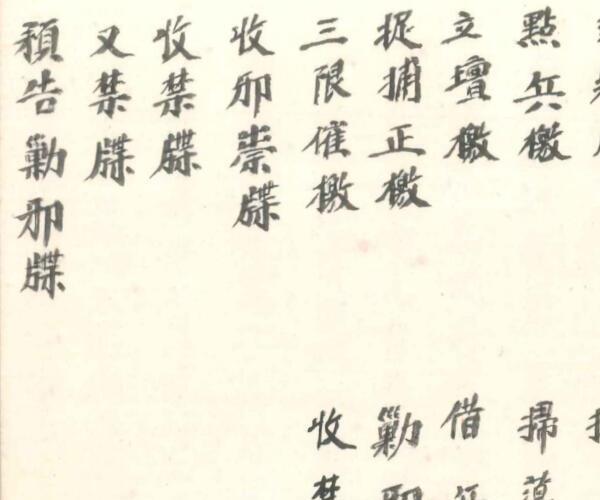 點兵檄
立壇檄
捉捕正檄
三限催檄
收邪祟牒
收禁牒
又禁牒
預告勦邪牒
掃蕩
借
勦邪
收禁